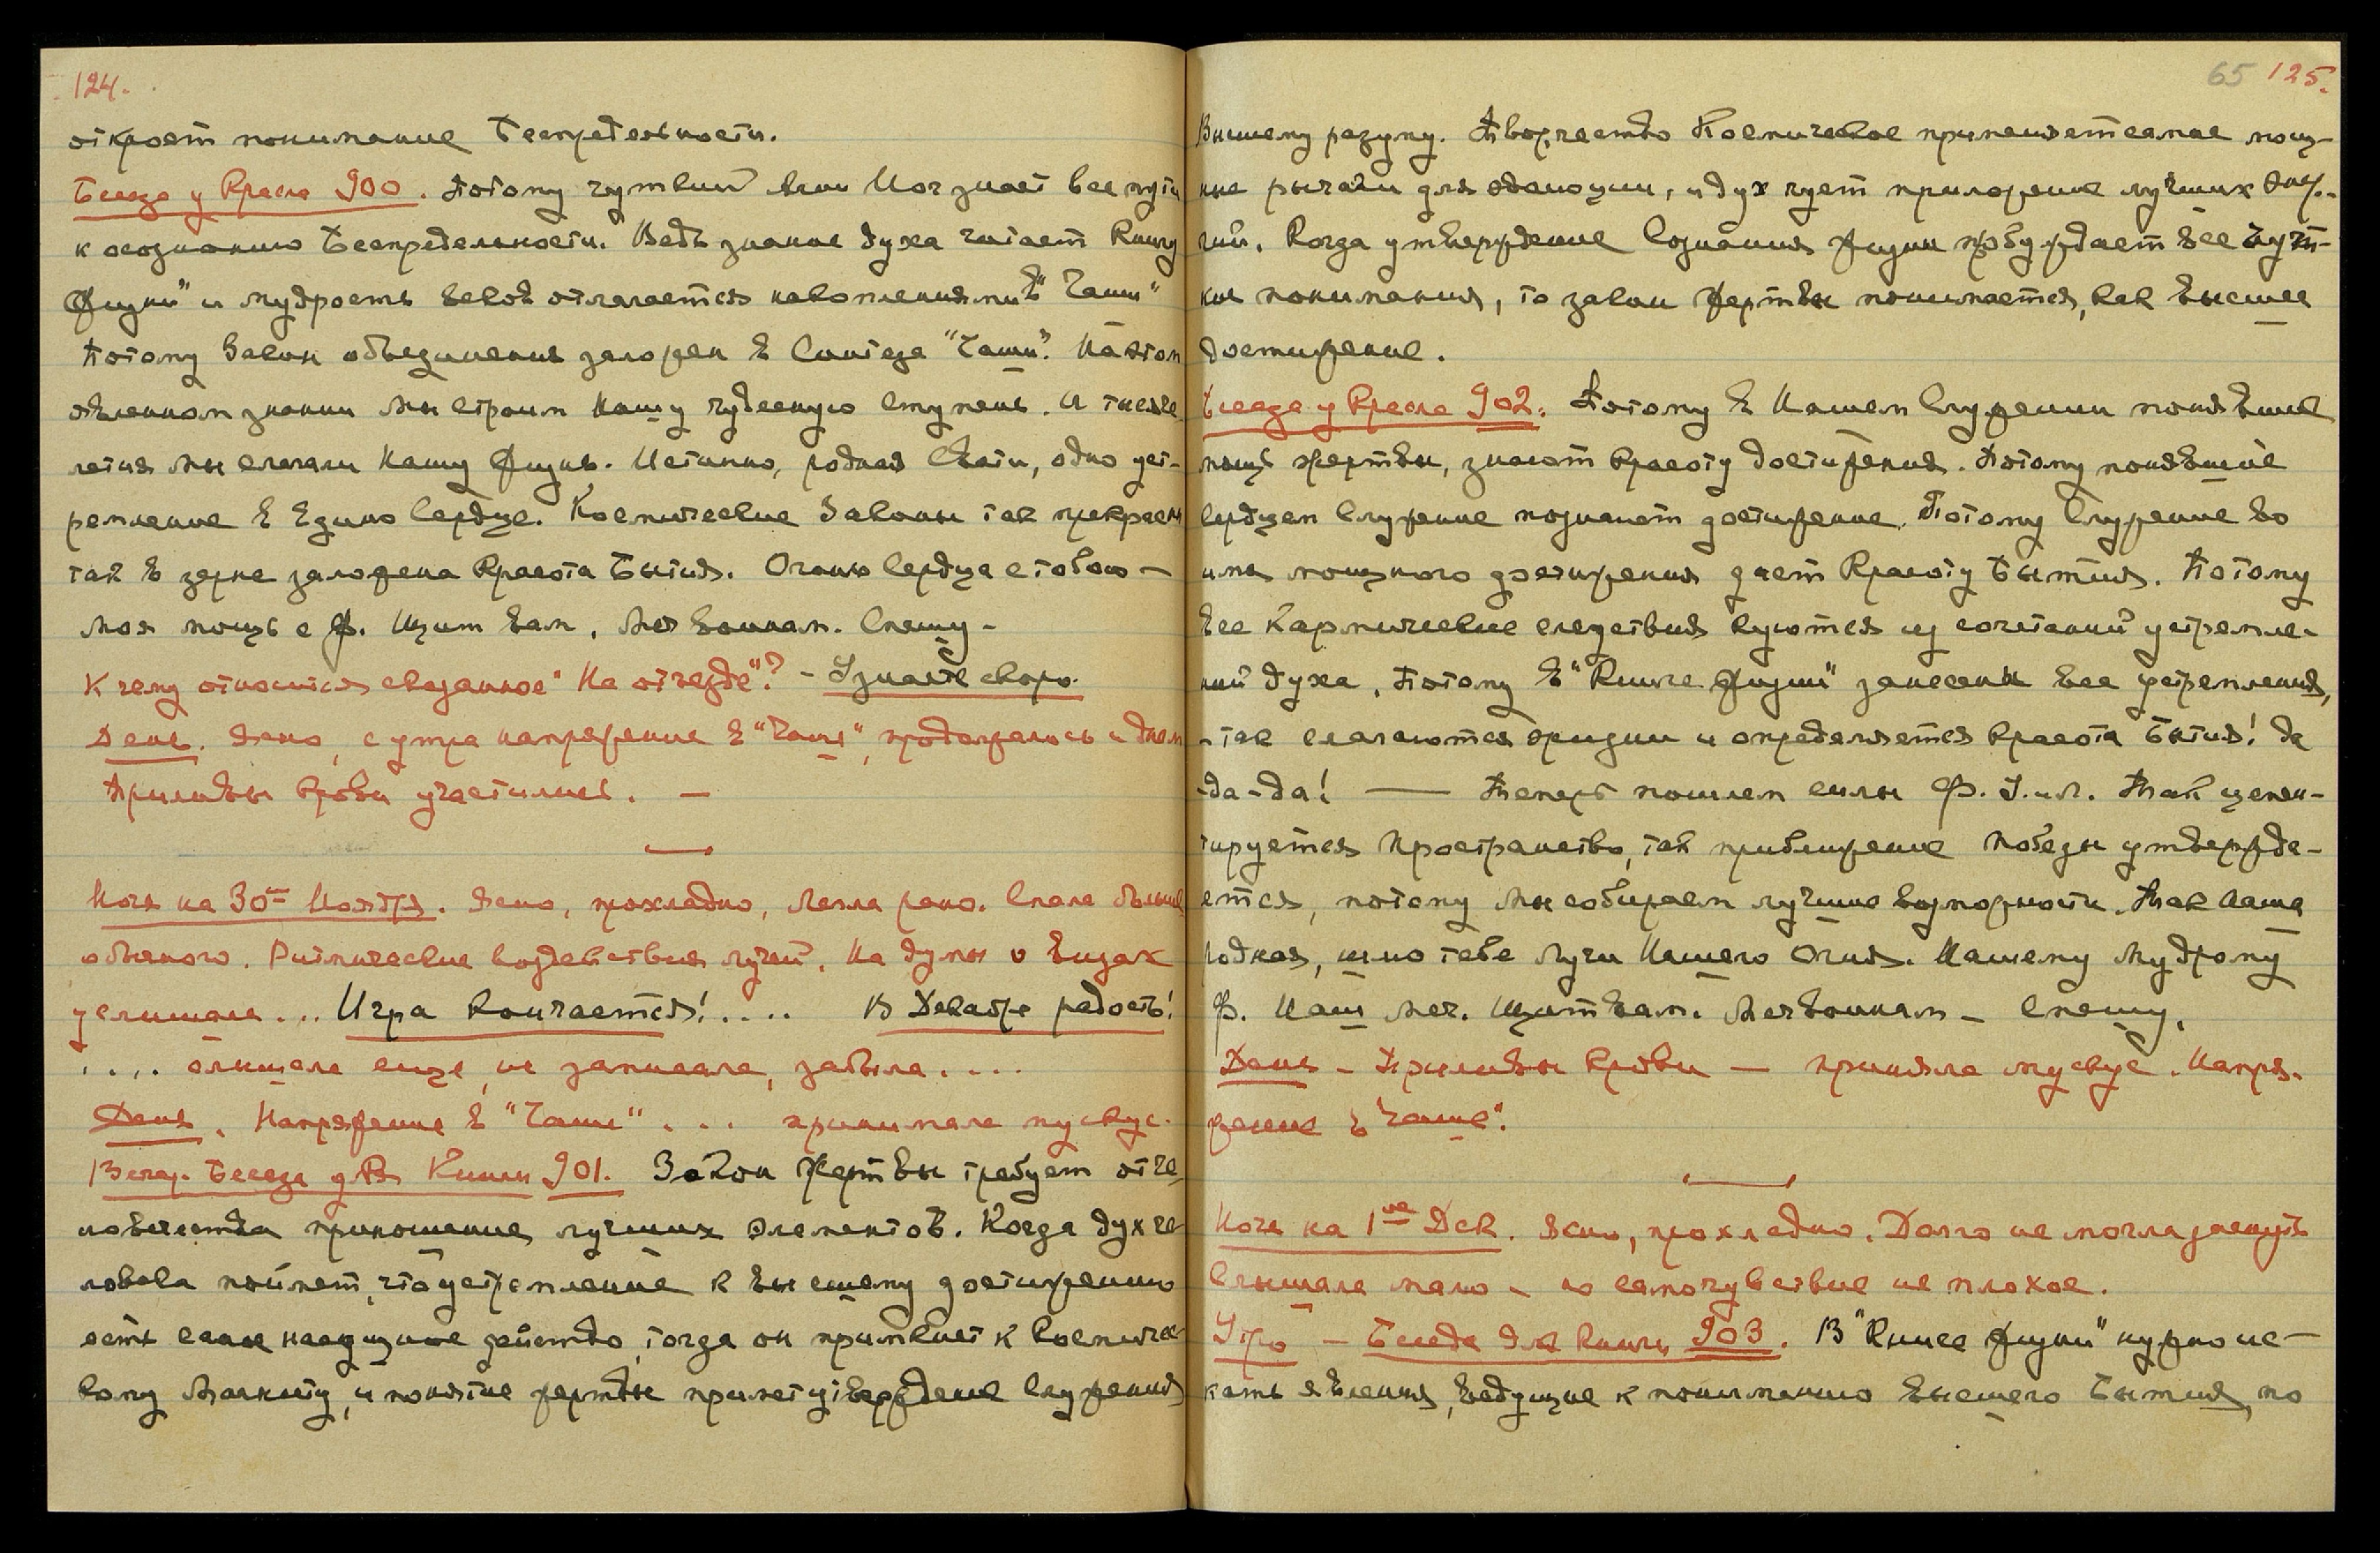 124.
откроет понимание Беспредельности.
Беседа у Кресла 900. Потому чуткий Наш знает все пути
к осознанию Беспредельности. Ведь знание духа читает Книгу
Жизни" и мудрость веков отлагается накоплениями в "Чаши"
Потому Закон объединения заложен в Синтезе "Чаши". На этом
явленном знании мы строим нашу чудесную ступень. И тысяче-
летия мы слагали нашу Жизнь. Истинно, родная Свати, одно уст-
ремление в Едино Сердце. Космические Законы так прекрасны
так в зерне заложена Красота Бытия. Огонь Сердца с тобою —
моя мощь с Ф. Щит вам, Меч воинам. Спешу —
К чему относится сказанное "На отъезде"? — Узнаете скоро.
День. Ясно, с утра напряжение в "Чаше", продолжалось и днем
Приливы крови участились. —
Ночь на 30ое Ноября. Ясно, прохладно, легла рано. Спала больше
обычного. Ритмические воздействия лучей. На думы о видах
услышала... Игра кончается!.... В Декабре радость!
.... слышала еще, не записала, забыла....
День. Напряжение в "Чаше"... принимала мускус.
Вечер. Беседа для Книги 901. Закон Жертвы требует от че-
ловечества приношения лучших элементов. Когда дух че-
ловека поймет, что устремление к высшему достижению
есть самое насущное действо, тогда он примкнет к Космичес-
кому Магниту, и понятие жертвы примет утверждение Служения
65 125.
Высшему разуму. Творчество Космическое применяет самые мощ-
ные рычаги для эволюции, и дух чует приложение лучших энер-
гий. Когда утверждение Сознания Жизни пробуждает все чутт-
кие понимания, то закон жертвы понимается, как высшее
достижение.
Беседа у Кресла 902. Потому в Нашем Служении понявшие
мощь жертвы, знают Красоту достижения. Потому понявшие
Сердцем Служение познают достижение. Потому Служение во
имя мощного достижения дает Красоту Бытия. Потому
все Кармические следствия куются из сочетаний устремле-
ний духа, Потому в "Книге Жизни" занесены все устремления,
- так слагаются жизни и определяется Красота Бытия! Да
-да-да! — Теперь пошлем силы Ф. У. и Л. Так цемен-
тируется Пространство, так приближение победы утвержда-
ется, потому мы собираем лучшие возможности. Так Наша
родная, шлю тебе Лучи Нашего Огня. Нашему Мудрому
Ф. Наш Меч. Щит вам. Меч воинам — Спешу.
День — Приливы Крови — приняла мускус. Напря-
жение в "Чаше".
Ночь на 1ое Дек. Ясно, прохладно. Долго не могла заснуть
Слышала мало — но самочувствие не плохое.
Утро — Беседа для Книги 903. В "Книге Жизни" нужно ис-
кать явления, ведущие к пониманию Высшего Бытия, но